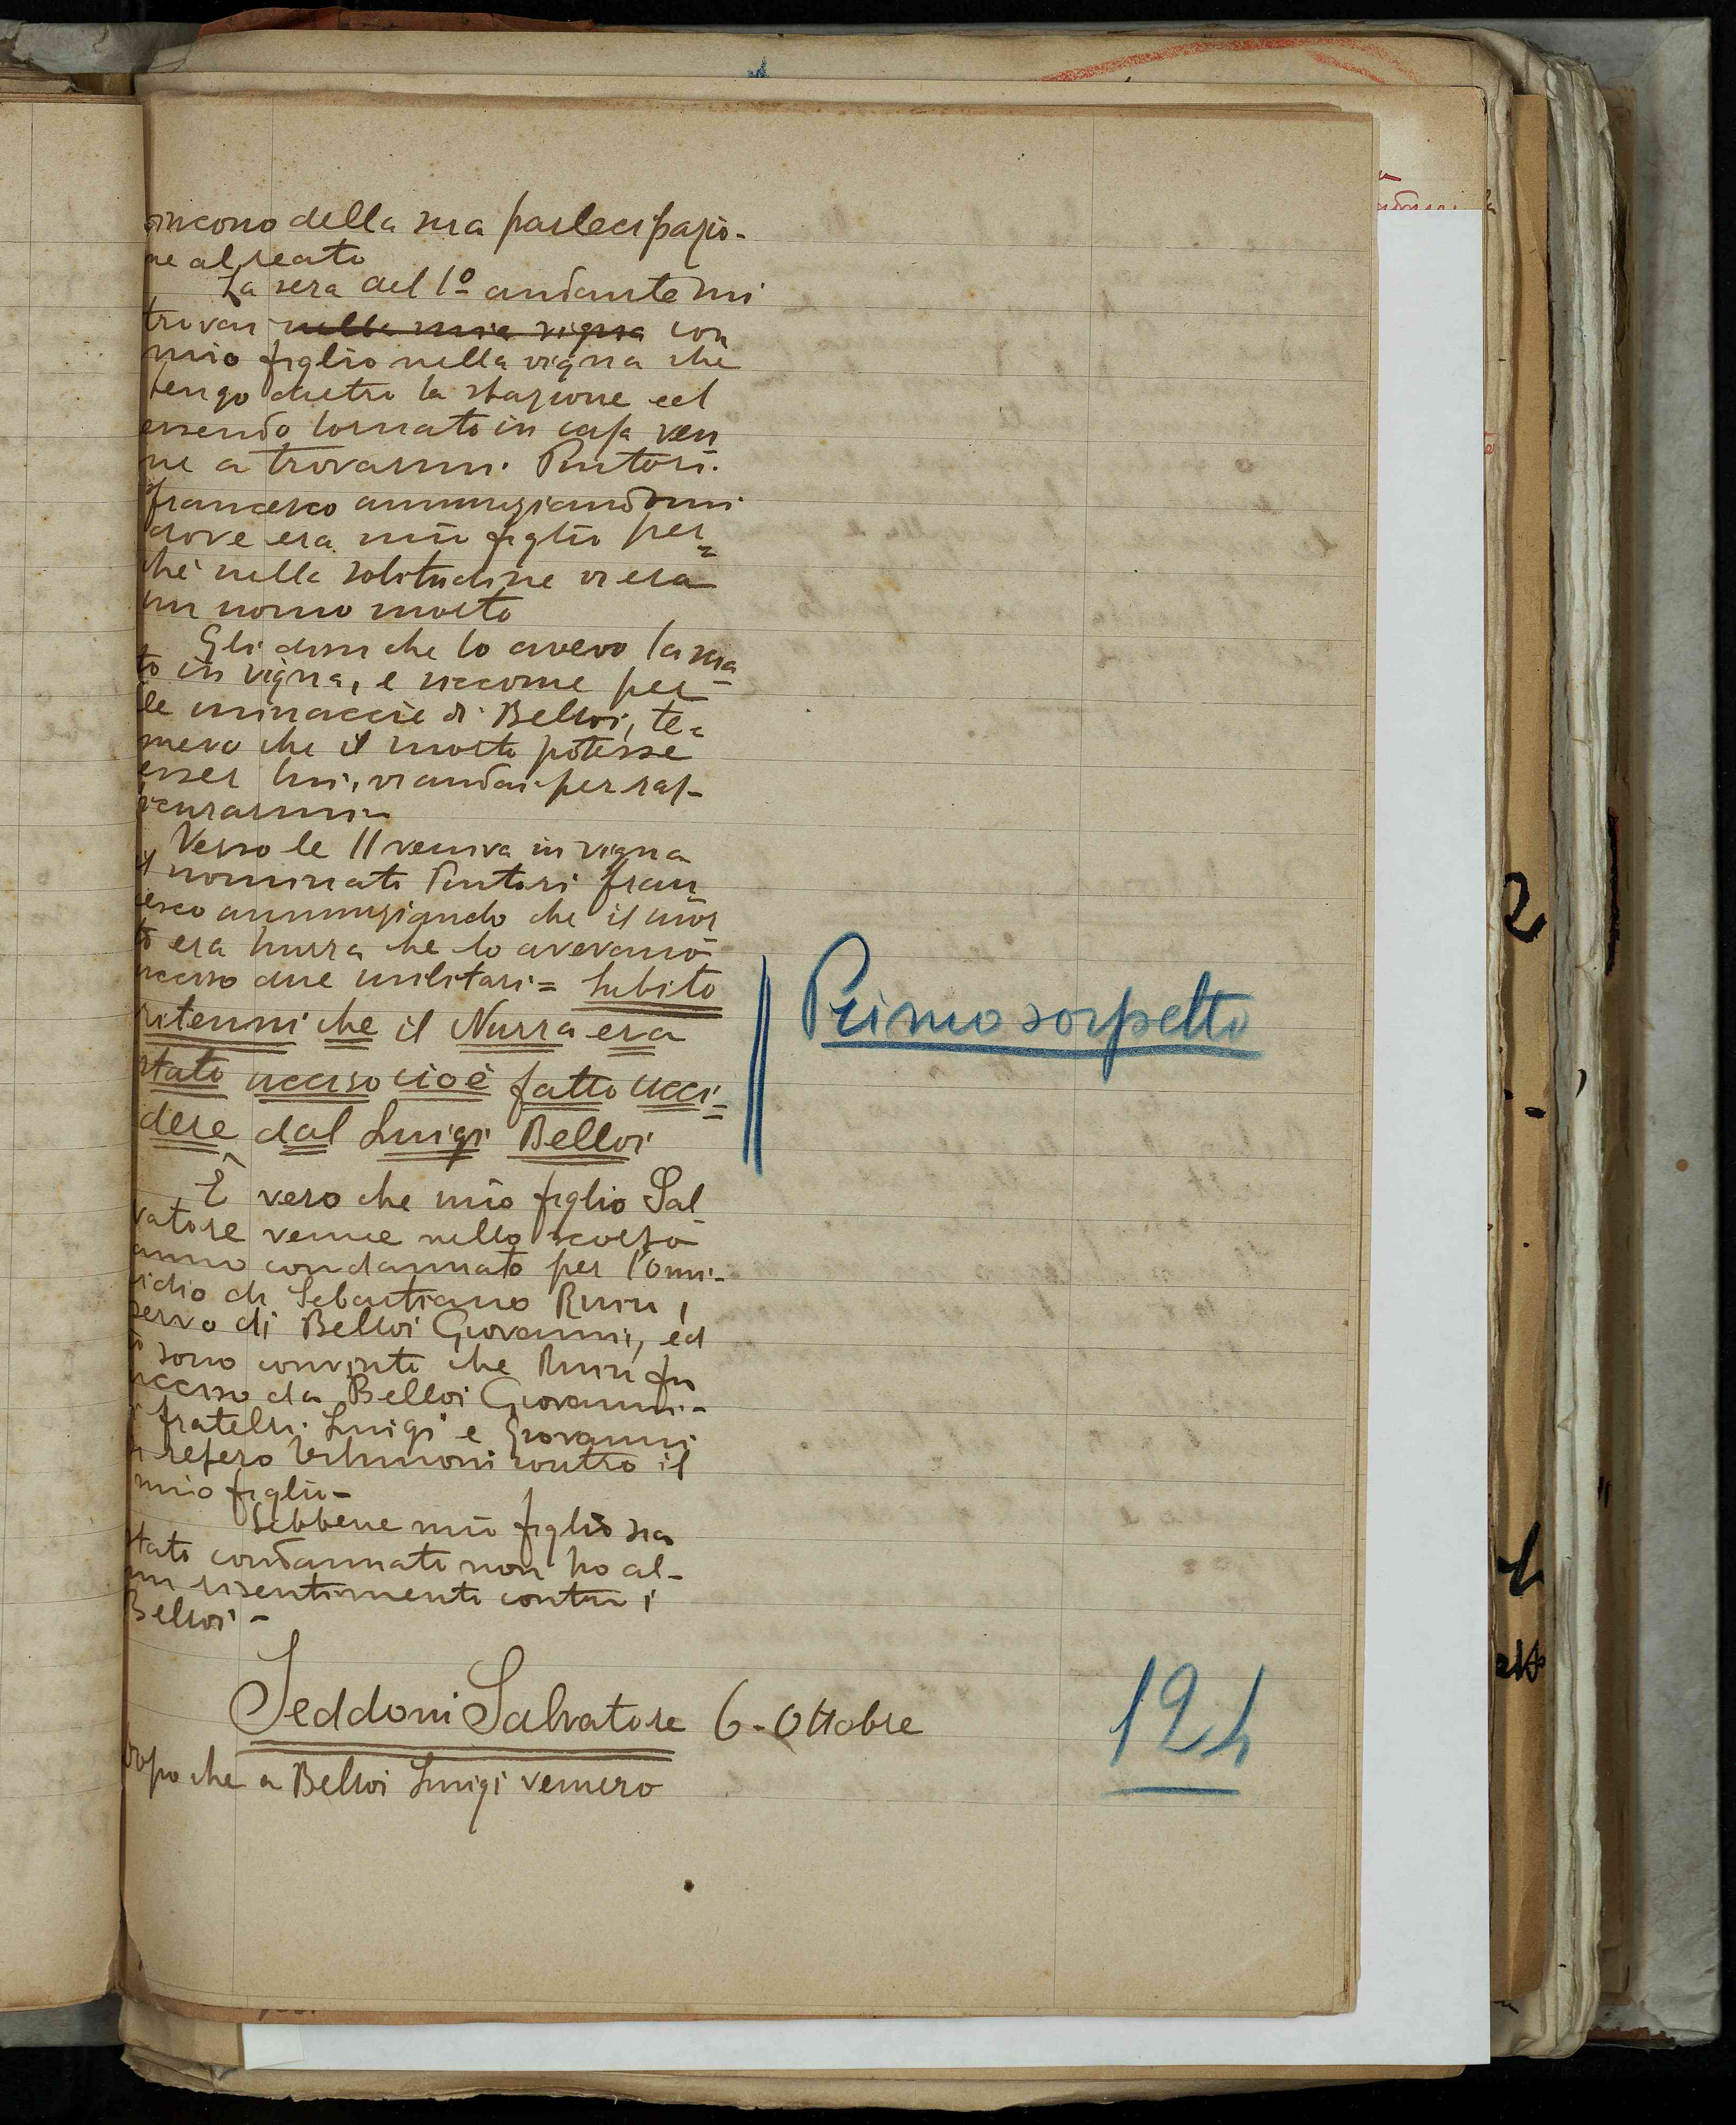 vincono della sua partecipazio-
ne al reato
La sera del 1º andante mi
trovai nella mia vigna con
mio figlio nella vigna che
tengo dietro la stazione ed
essendo tornato in casa ven
ne a trovarmi Pintori
Francesco annunziandomi
dove era mio figlio per=
chè nella solitudine vi era
un uomo morto
Gli dissi che lo avevo lascia
to in vigna, e siccome per
le minaccie di Belloi, te=
mevo che il morto potesse
esser lui, vi andai per ras-
sicurarmi-
Verso le 11 veniva in vigna
il nominato Pintori Fran
cesco annunziando che il mor
to era Nurra che lo avevano
ucciso due militari= Subito
ritenni che il Nurra era
stato ucciso cioè fatto ucci=
dere dal Luigi Belloi
Primo sospetto
È vero che mio figlio Sal
vatore venne nello scorso
anno condannato per l'omi-
cidio di Sebastiano Ruiu,
servo di Belloi Giovanni, ed
io sono convinto che Ruiu fu
ucciso da Belloi Giovanni-
I fratelli Luigi e Giovanni
si resero testimoni contro il
mio figlio-
Sebbene mio figlio sia
stato condannato non ho al-
cun risentimento contro i
Belloi-
Seddoni Salvatore 6-Ottobre
Dopo che a Belloi Luigi vennero